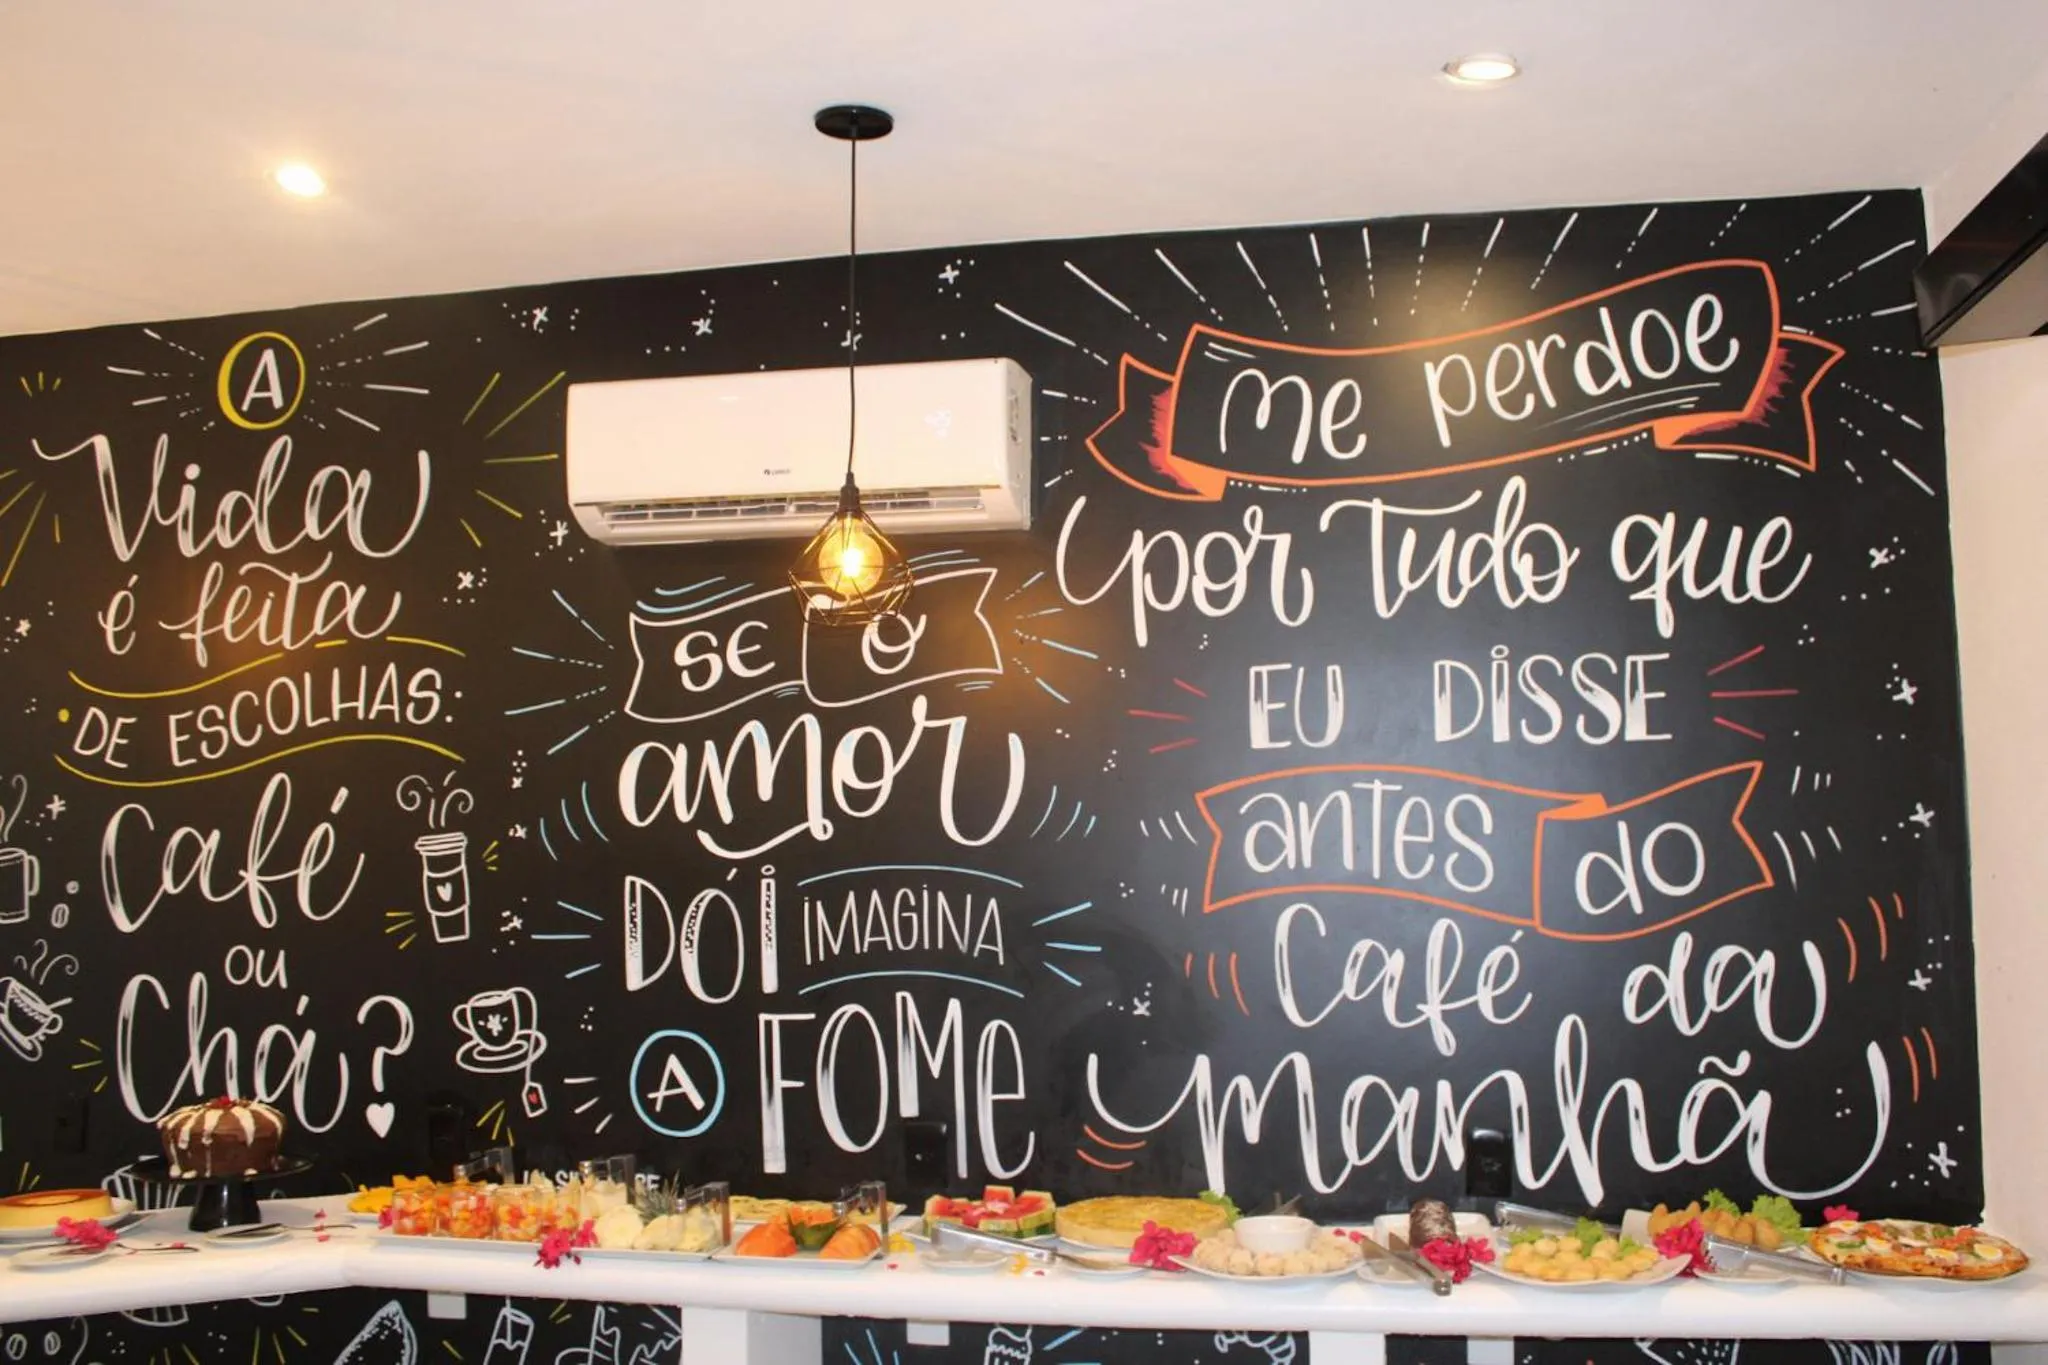 A
Vida
é feita
DE ESCOLHAS:
Café
ou
Chá?
SE O
amor
DÓI IMAGINA
A FOME
Me perdoe
por Tudo que
EU DISSE
antes do
Café da
Manhã